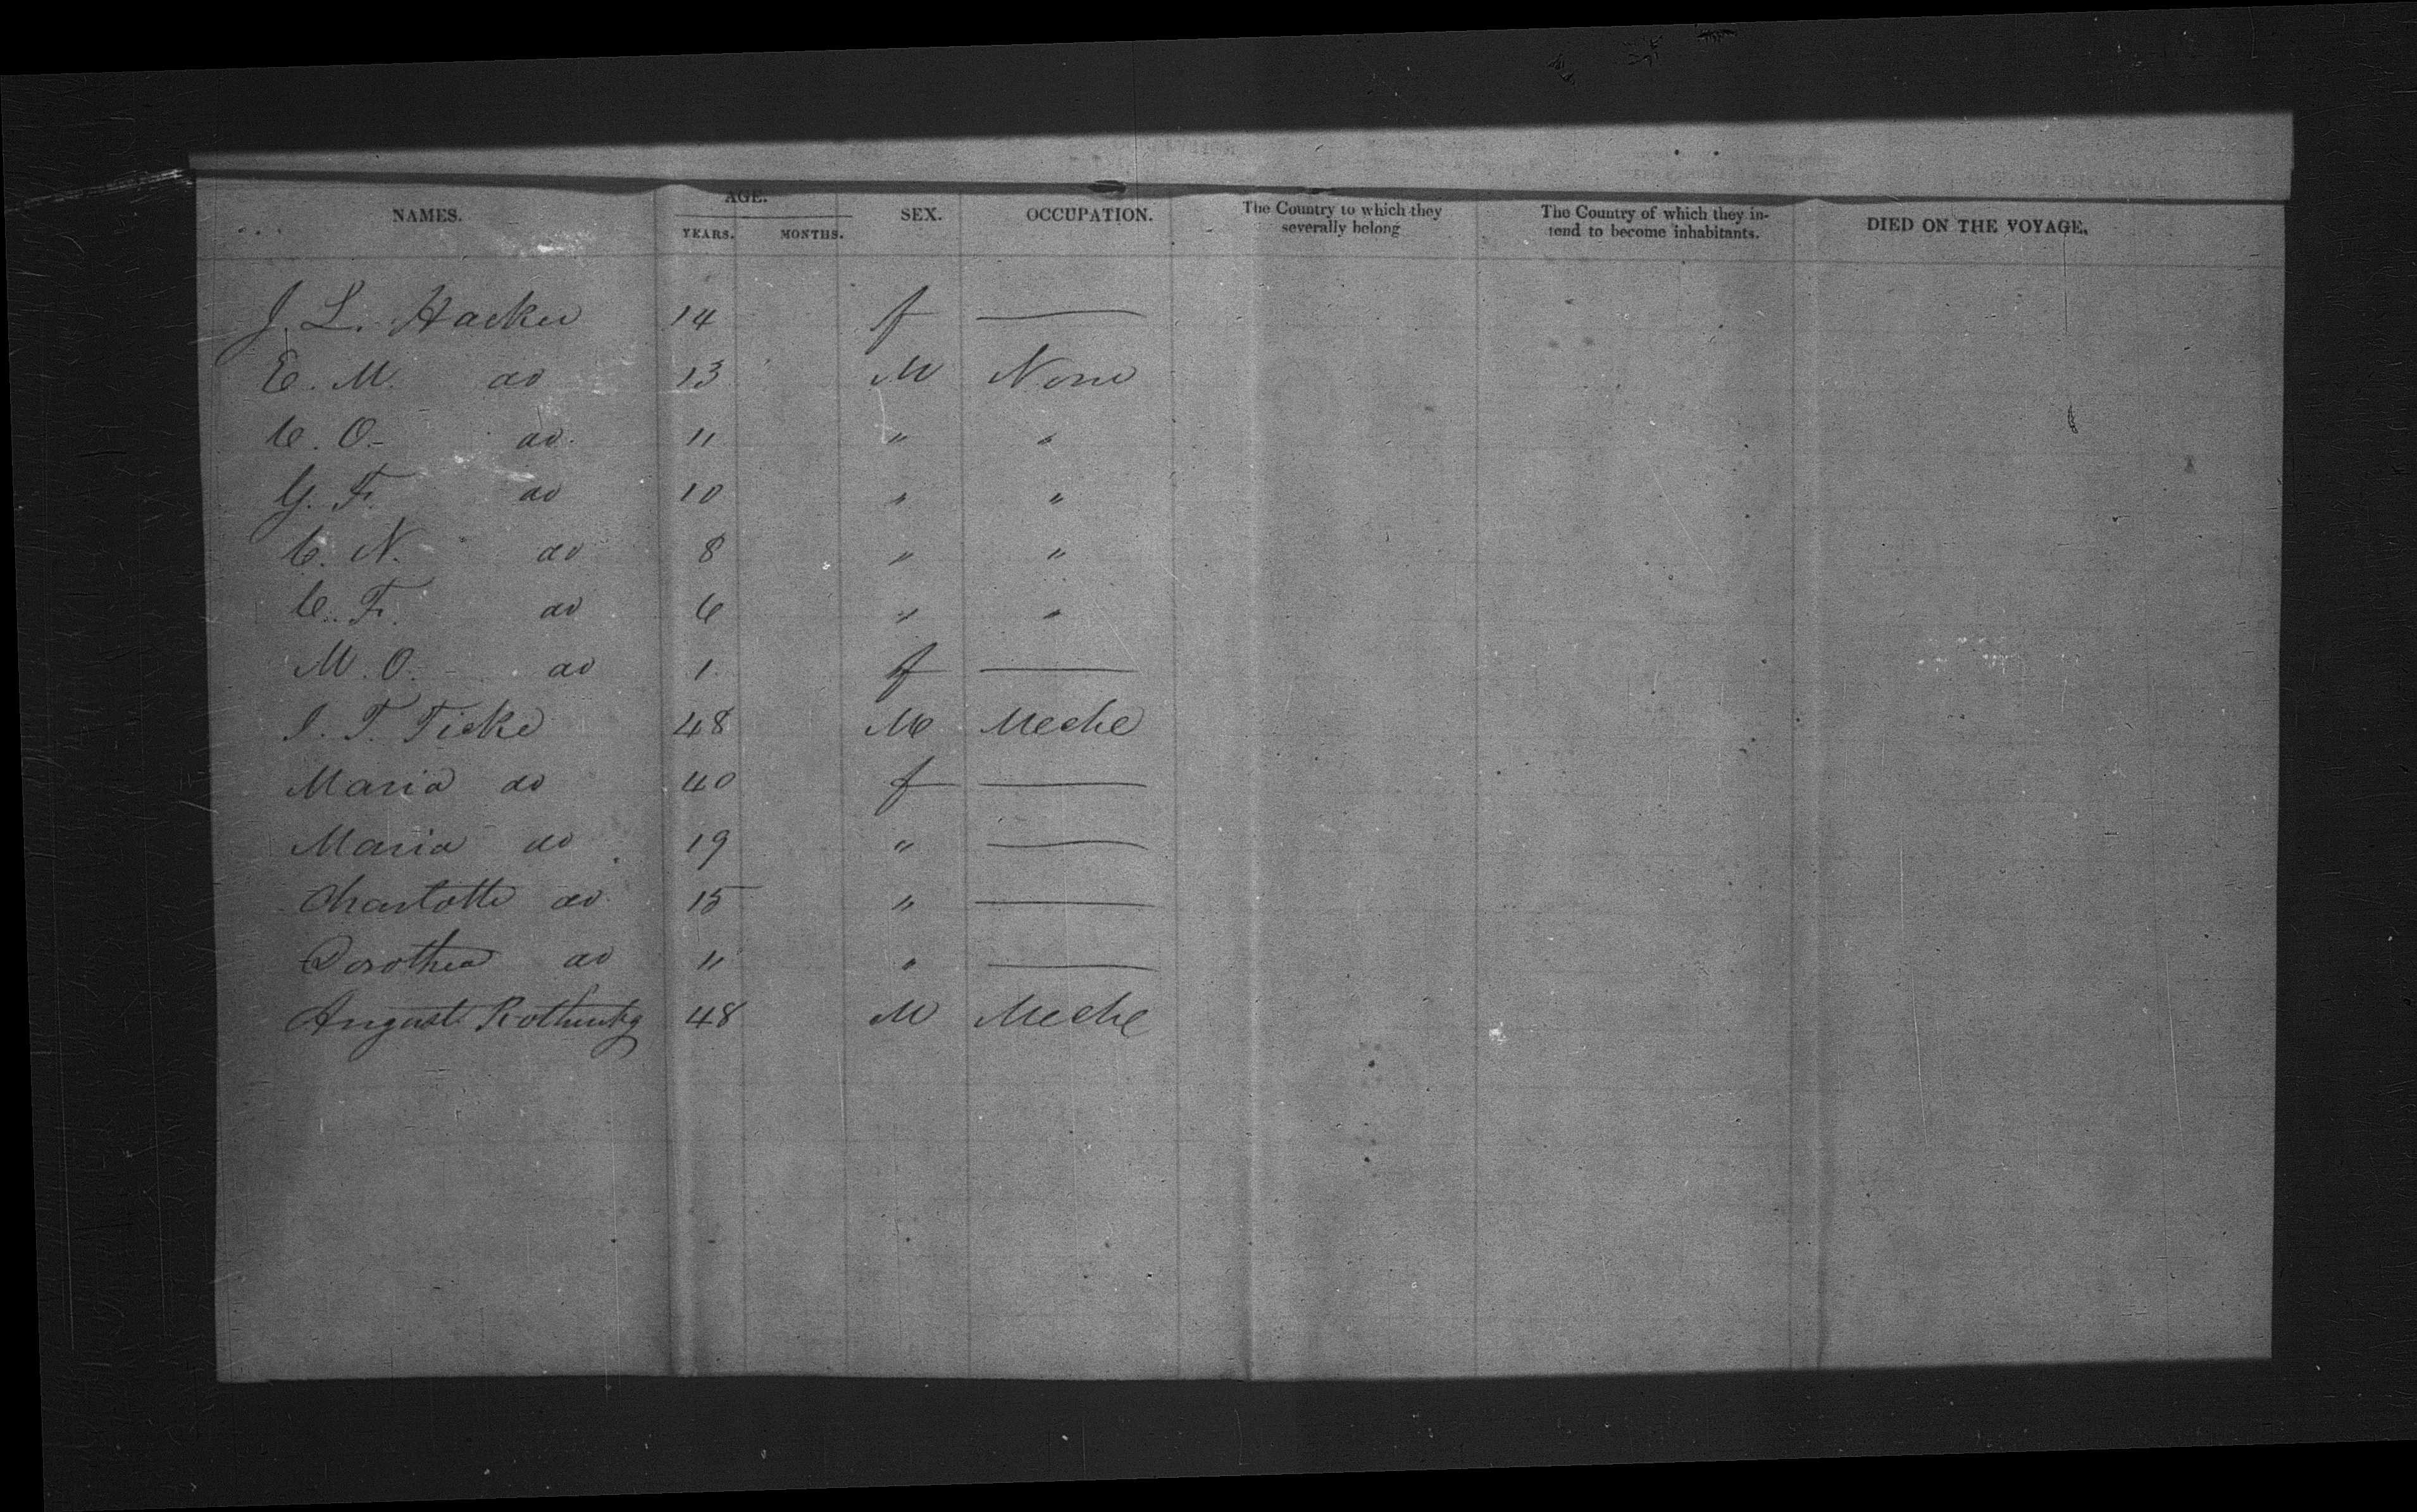 NAMES. AGE. SEX. OCCUPATION. The Country to which they severally belong The Country of which they intend to become inhabitants. DIED ON THE VOYAGE.
YEARS. MONTHS.
J. L. Hacker 14 f —
E. M. do 13 M None
C. O. do 11 " "
G. F. do 10 " "
C. N. do 8 " "
C. F. do 6 " "
M. O. do 1 f —
J. T. Ticke 48 M Mechc
Maria do 40 f —
Maria do 19 " —
Charlotte do 15 " —
Dorothea do 11 " —
August 48 M Mechc